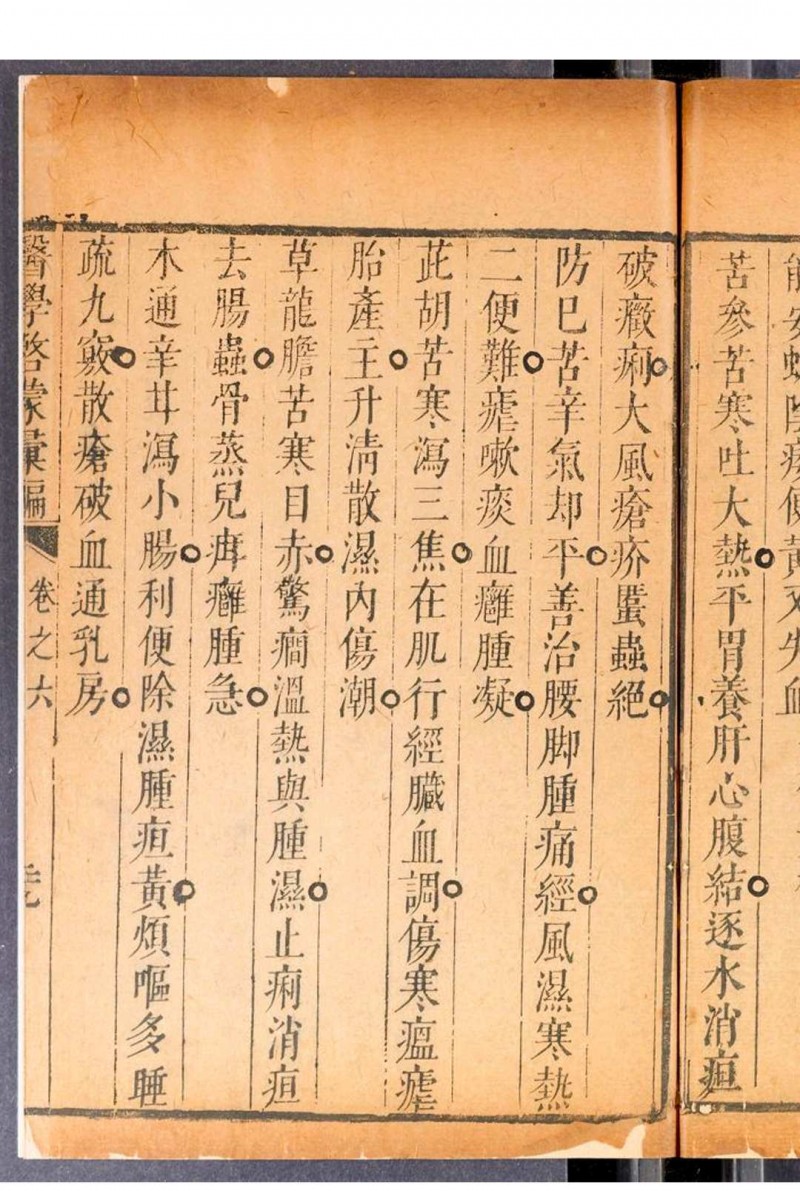 苦參苦寒吐大熱平胃養肝心腹結逐水消疸
破癥痢大風瘡疥䘌蟲絕
防巳苦辛氣却平善治腰脚腫痛經風濕寒熱
二便難瘧嗽痰血癰腫凝
茈胡苦寒瀉三焦在肌行經臟血調傷寒瘟瘧
胎產主升清散濕內傷潮
草龍膽苦寒目赤驚癎溫熱與腫濕止痢消疸
去腸蟲骨蒸兒疳癰腫急
木通辛甘瀉小腸利便除濕腫疸黃煩嘔多睡
疏九竅散瘡破血通乳房
醫學啓蒙彙編 卷之六